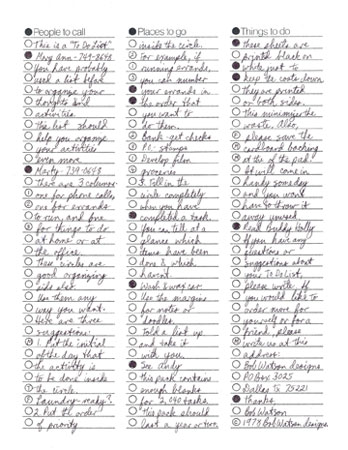 People to call
This is a "To Do List"
Mary Ann - 749-8643
You have probably
used a list before
to organize your
thoughts and
activities.
This list should
help you organize
your activities
even more.
Marty - 739-8643
There are 3 columns:
one for phone calls,
one for errands
to run, and one
for things to do
at home or at
the office.
These circles are
good organizing
aids also.
Use them any
way you want.
Here are three
suggestions:
1. Put the initial
of the day that
the activity is
to be done inside
the circle.
Laundry-ready?
2. Put the order
of priority
Places to go
inside the circle.
For example, if
running errands,
you can number
your errands in
the order that
you want to
do them.
bank-get checks
P.O. stamps
Develop film
groceries
3. Fill in the
circle completely
when you have
completed a task.
You can tell at a
glance which
items have been
done & which
haven't.
Wash & wax car
Use the margins
for notes or
doodles.
Fold a list up
and take it
with you.
See Andy
This pack contains
enough blanks
for 2,040 tasks.
This pack should
last a year or two.
Things to do
These sheets are
print black on
white just to
keep the costs down
They are printed
on both sides.
This minimizes the
waste. Also,
please save the
cardboard backing
at the of the pad.
It will come in
handy someday
and you won't
have to throw it
away unused.
Read Buddy Holly
If you have any
questions or
suggestions about
your To Do List,
please write. If
you would like to
order more for
yourself or for a
friend, please
write us at this
address:
Bob Watson designs
PO Box 3025
Dallas Tx 75221
thanks.
Bob Watson
© 1978 Bob Watson designs